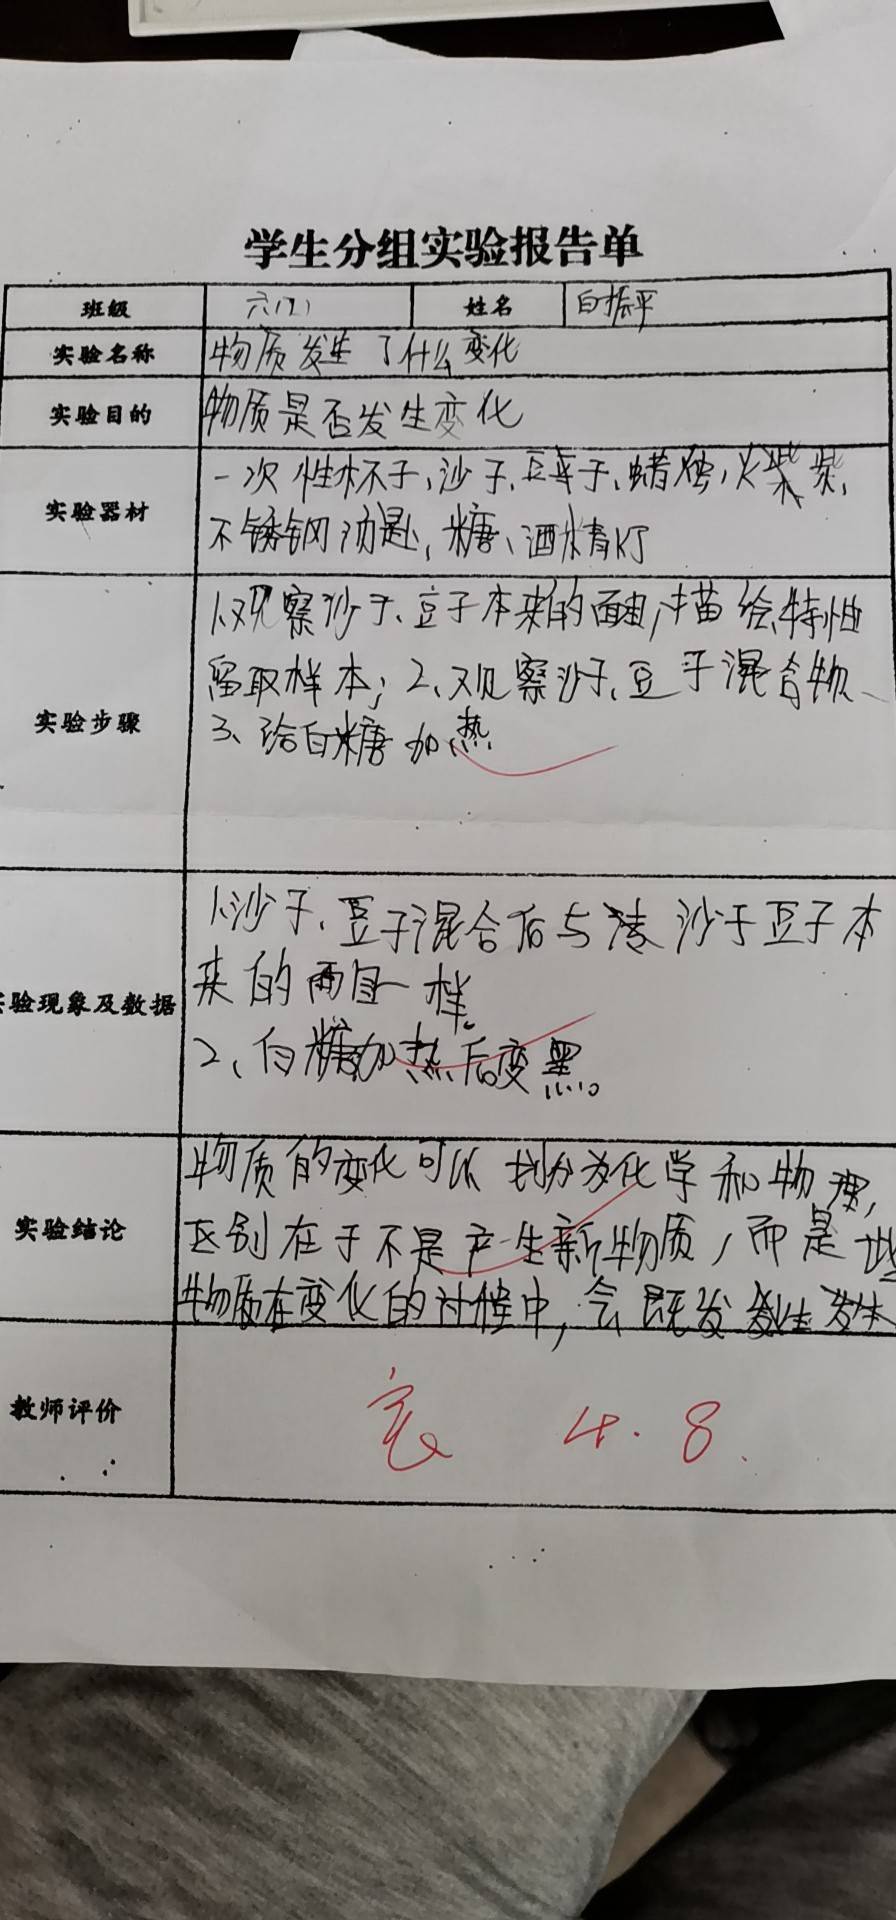 学生分组实验报告单
班级 六(1) 姓名 白振平
实验名称 物质发生了什么变化
实验目的 物质是否发生变化
实验器材 一次性杯子,沙子,豆子、蜡烛,火柴,
不锈钢汤匙,糖、酒精灯
1.观察沙子、豆子本来的面,描绘特性
留取样本;2、观察沙子、豆子混合物、
实验步骤
3、给白糖加热
1、沙子、豆子混合后与 沙子豆子本
来的面目一样。
实验现象及数据
2、白糖加热后变黑。
物质的变化可以划分为化学和物理,
实验结论 区别在于不是产生新物质,而是
物质在变化的过程中,会既发
教师评价 良 4.8.